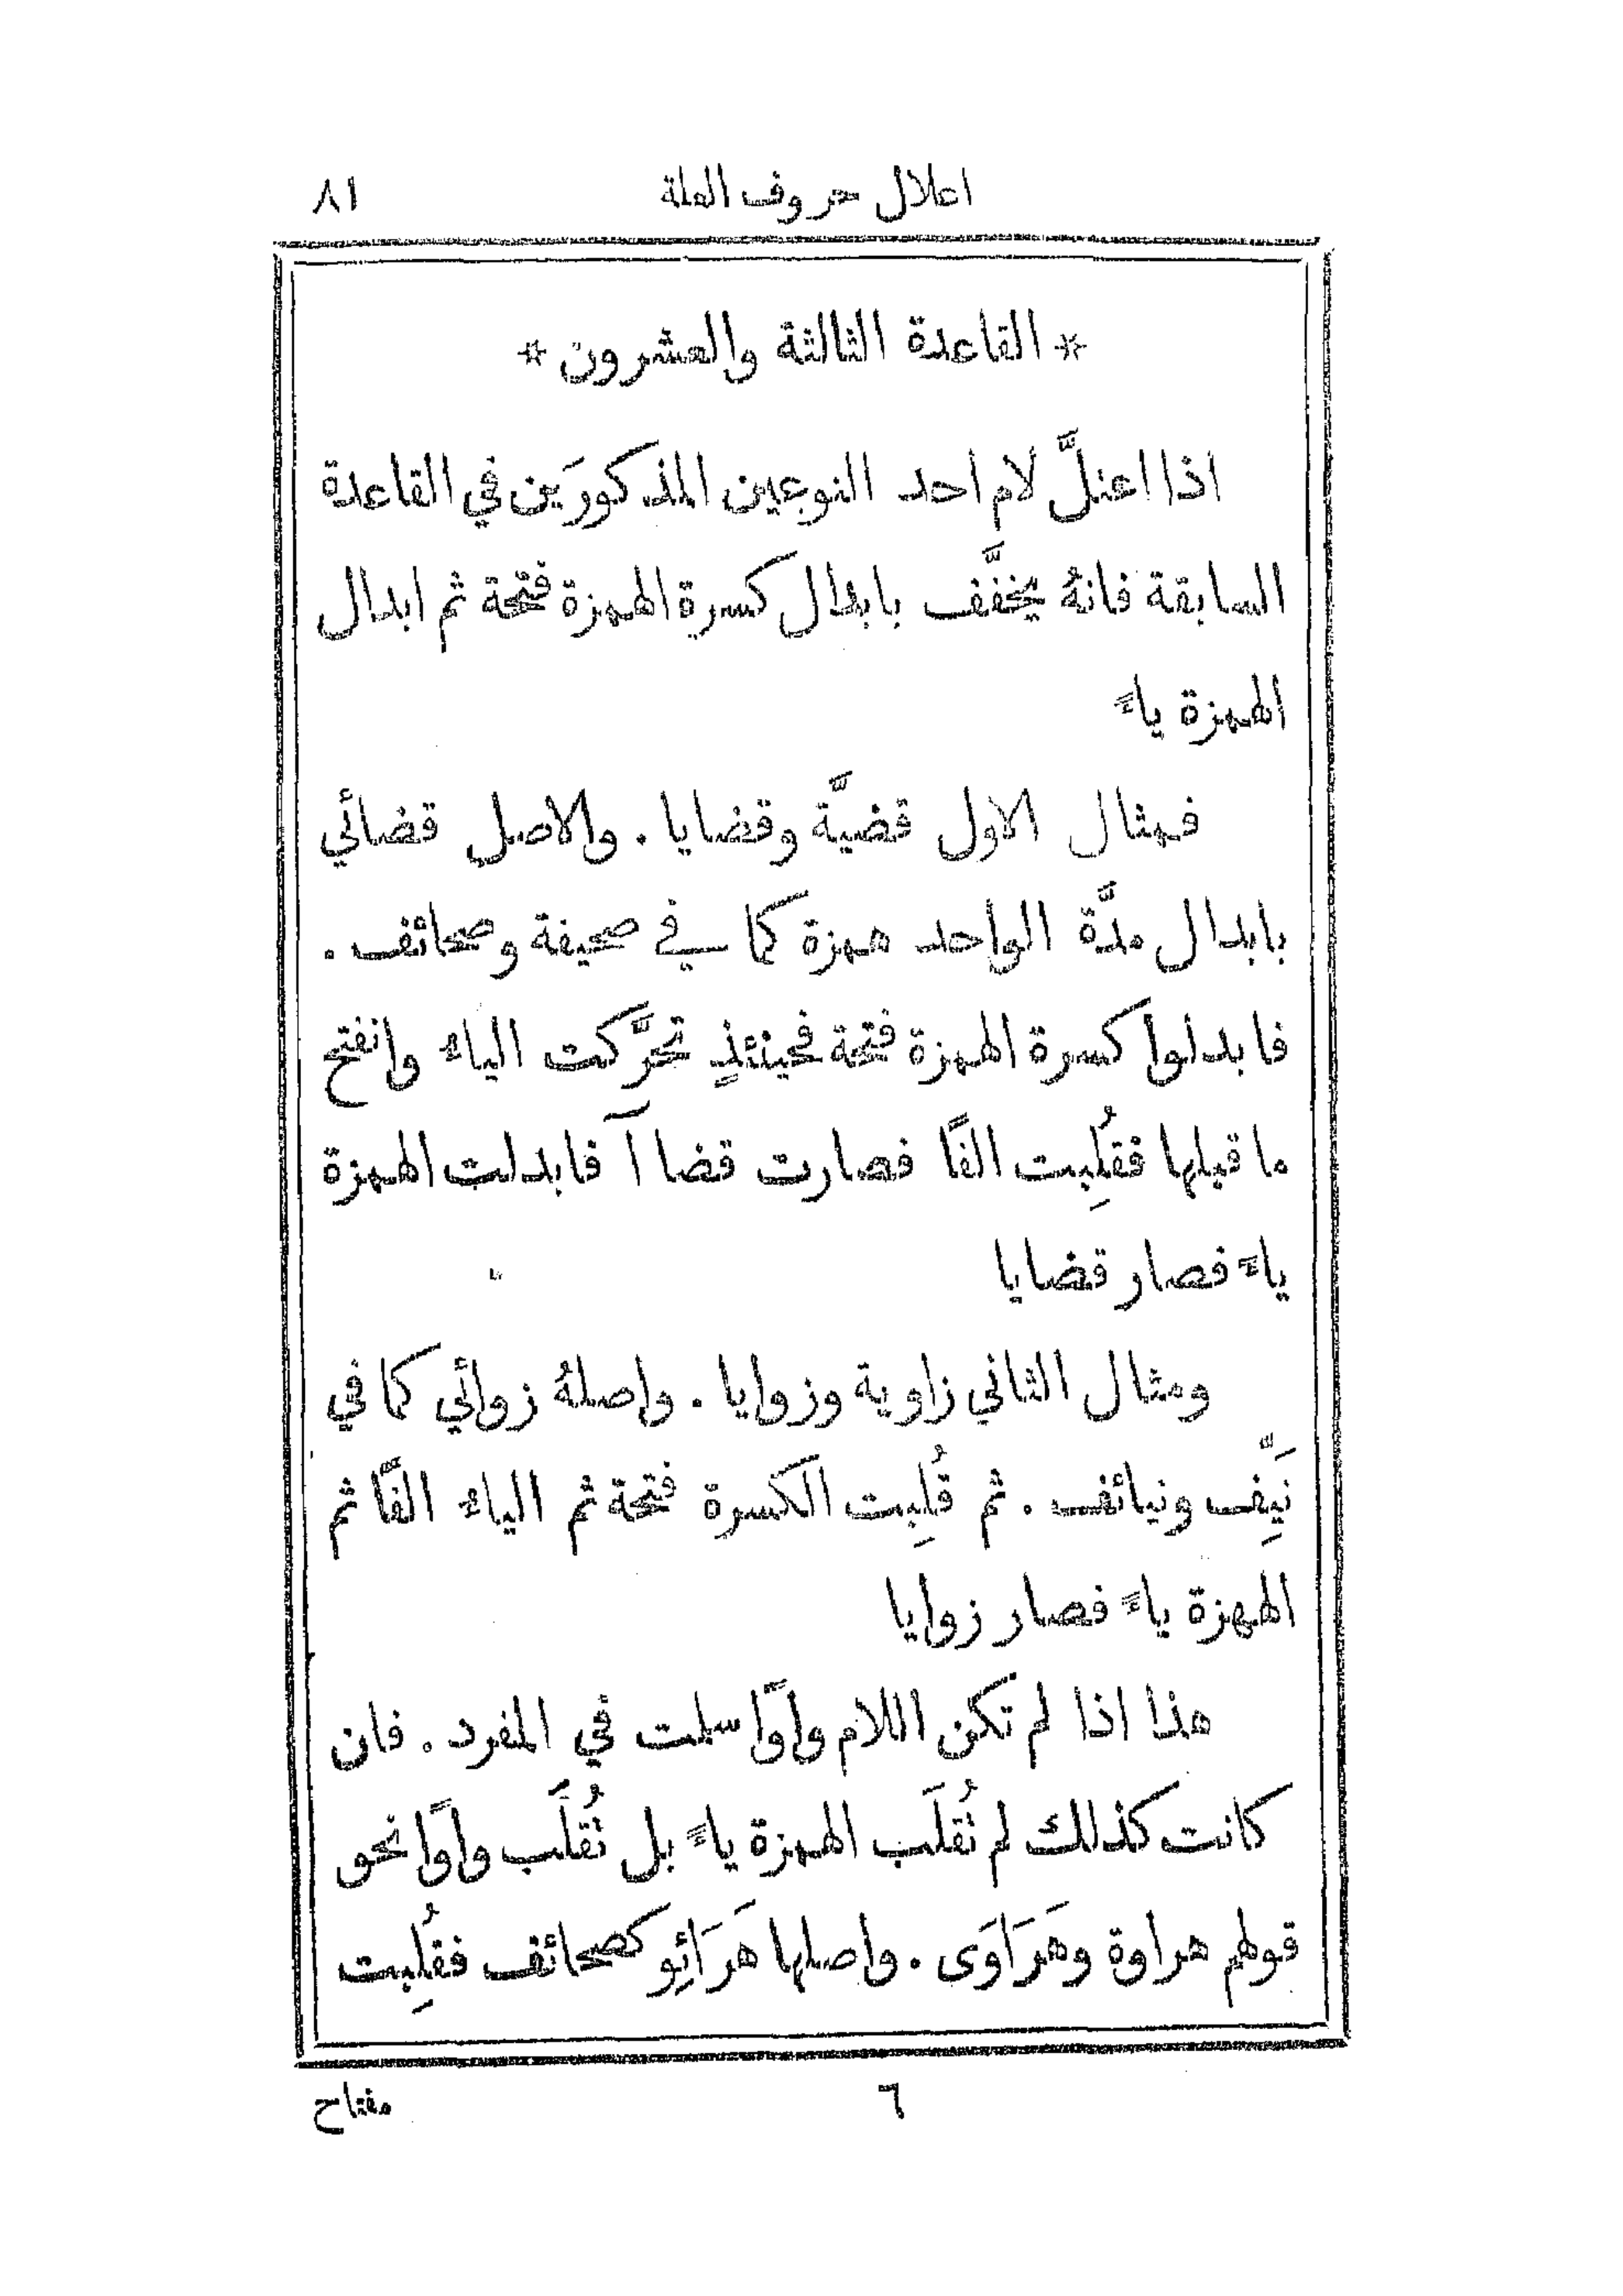 اعلال حروف العلة ٨١
* القاعدة الثالثة والعشرون *
اذا اعتلَّ لام احد النوعين المذكورَين في القاعدة
السابقة فانهُ يخفَّف بابدال كسرة الهمزة فتحة ثم ابدال
الهمزة ياءً
فمثال الاول قضيَّة وقضايا . والاصل قضائي
بابدال مدَّة الواحد همزة كما في صحيفة وصحائف .
فابدلوا كسرة الهمزة فتحة فحينئذٍ تحرَّكت الياء وانفتح
ما قبلها فقُلِبت الفًا فصارت قضاآ فابدلت الهمزة
ياءً فصار قضايا
ومثال الثاني زاوية وزوايا . واصلهُ زوائي كما في
نَيِّف ونيائف . ثم قُلِبت الكسرة فتحة ثم الياء الفًا ثم
الهمزة ياءً فصار زوايا
هذا اذا لم تكن اللام واوًا سلمت في المفرد . فان
كانت كذلك لم تُقلَب الهمزة ياءً بل تُقلَب واوًا نحو
قولهم هراوة وهَرَاوَى . واصلها هَرَائِو كصحائف فقُلِبت
٦ مفتاح